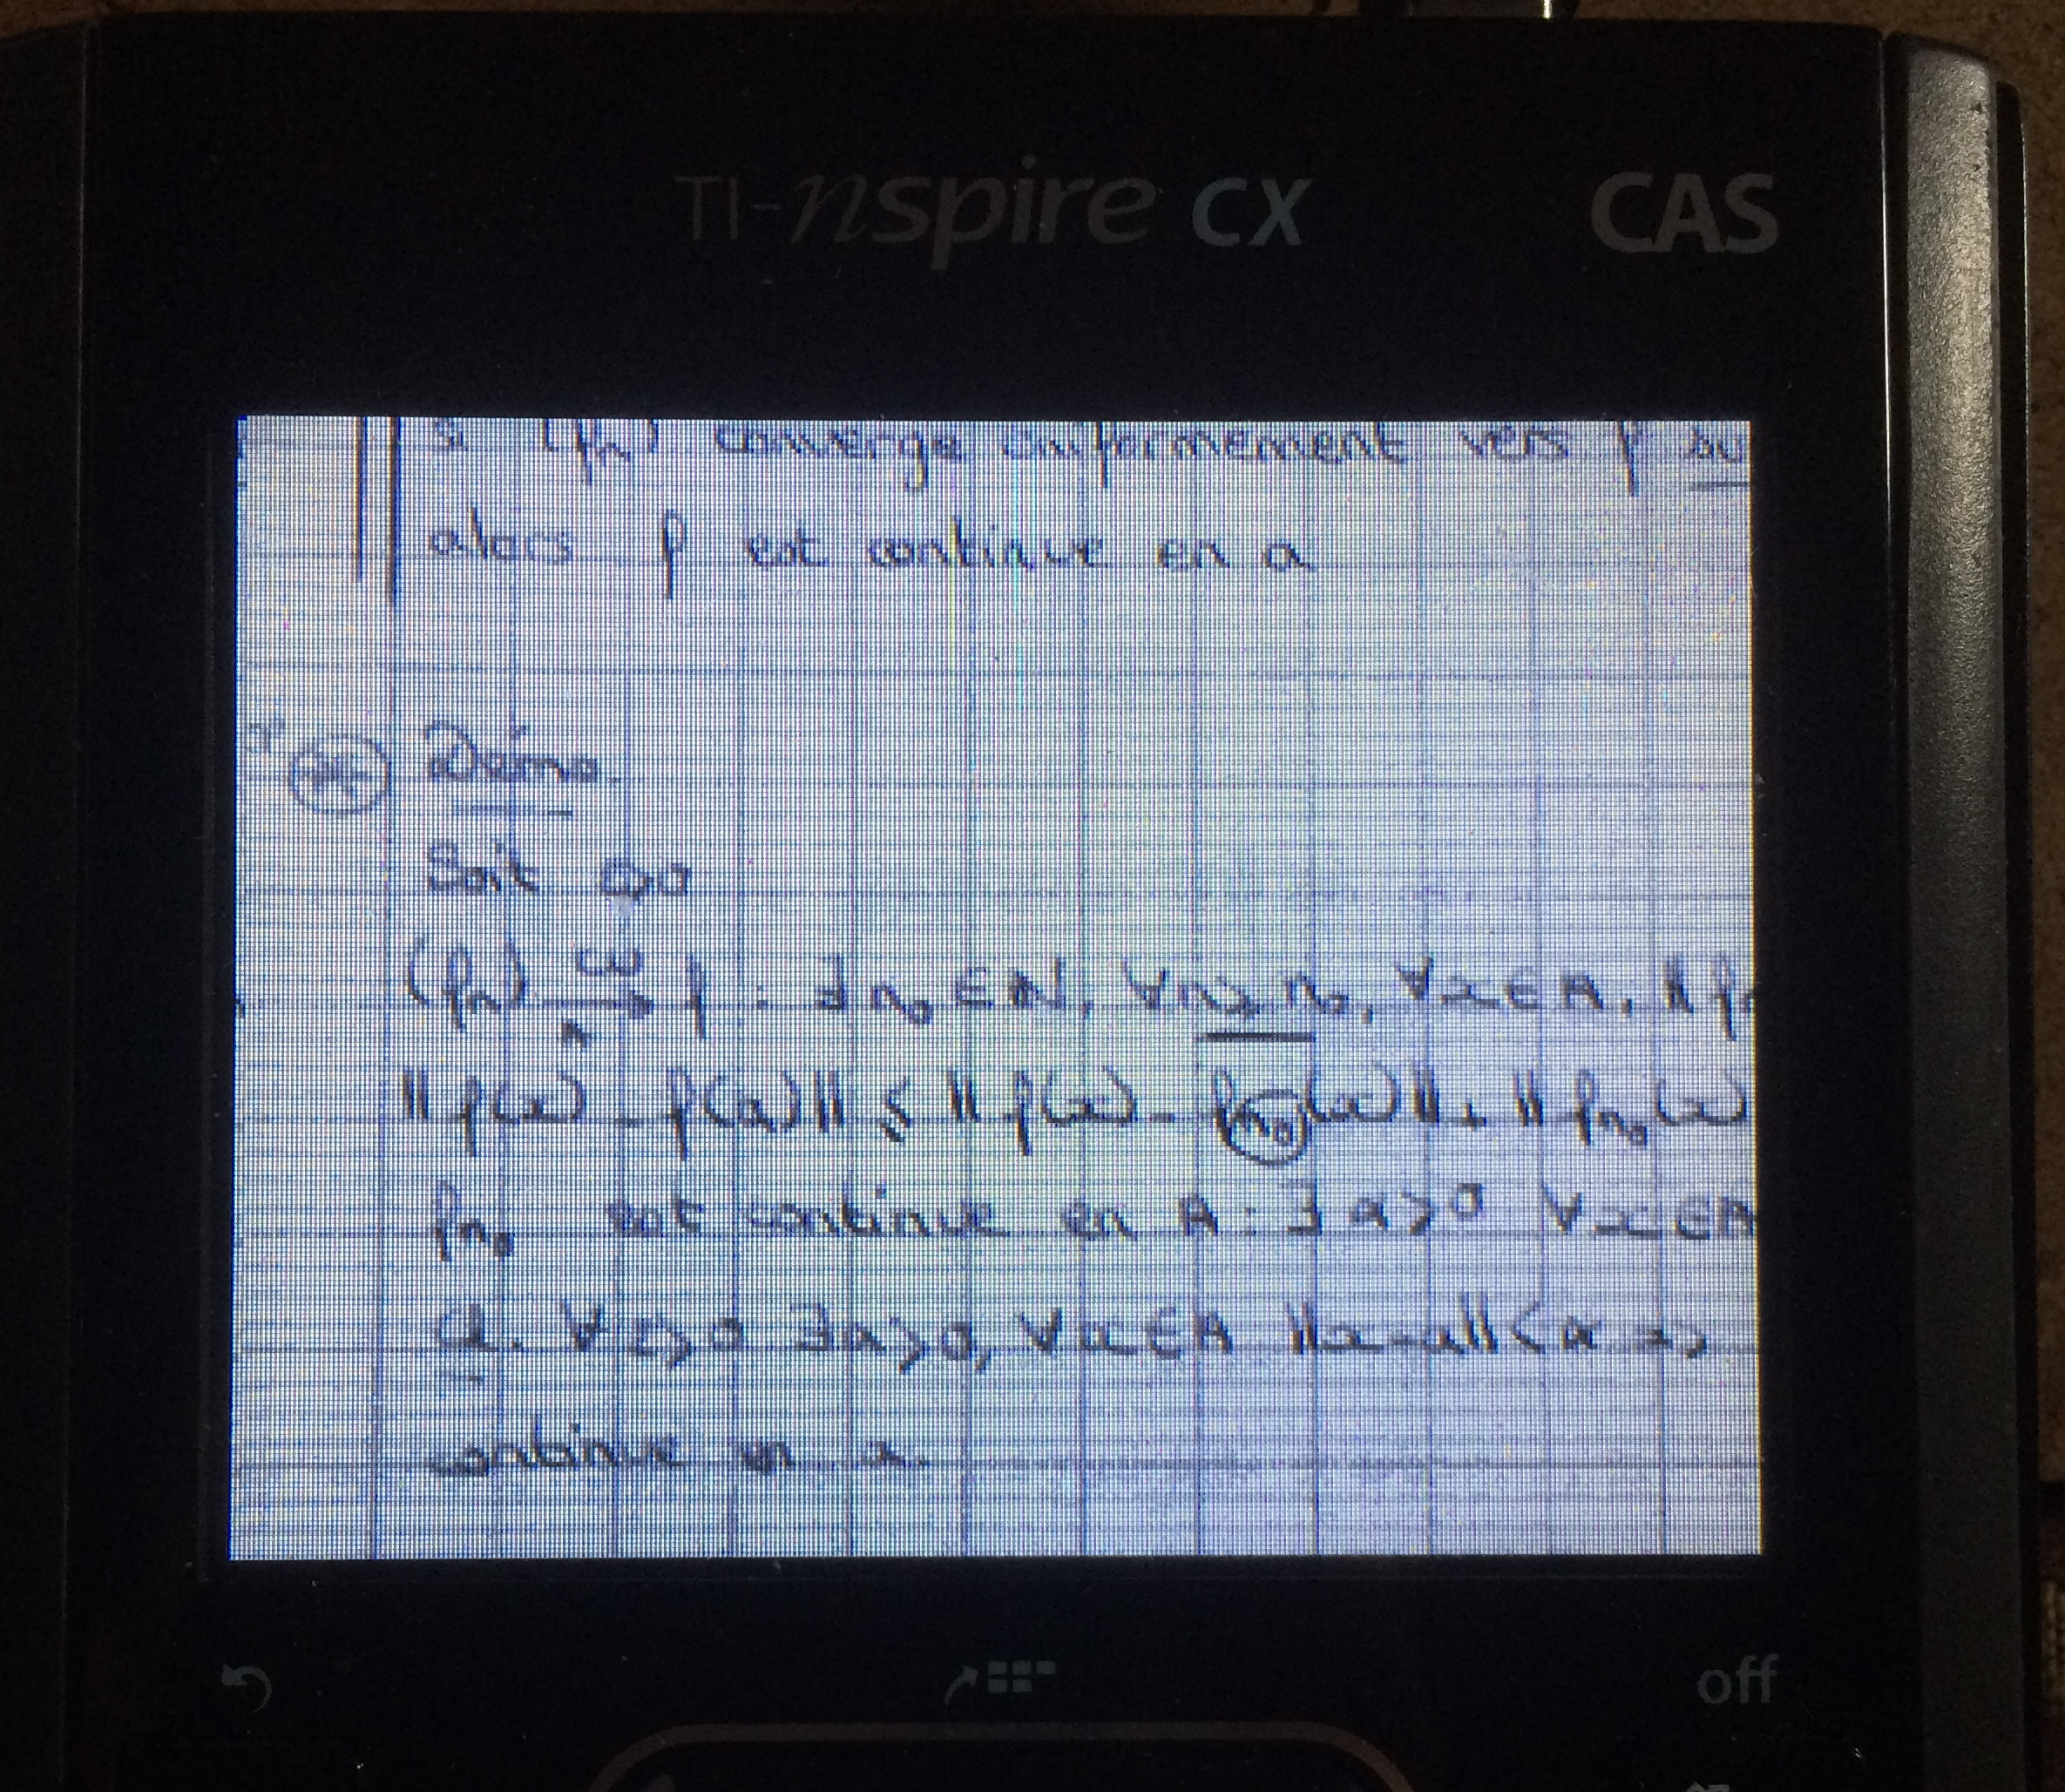 TI-nspire CX CAS
Si (fn) converge uniformément vers f su
alors f est continue en a
Démo.
Soit ε>0
(fn) CU→ A f : ∃ n₀ ∈ ℕ, ∀n≥n₀, ∀x∈A, ‖f
‖f(x) - f(a)‖ ≤ ‖f(x) - fn₀(x)‖ + ‖fn₀(x)
fn₀ est continue en A : ∃ α>0 ∀x∈A
∀ε>0 ∃α>0, ∀x∈A ‖x-a‖<α =>
continue en a.
off